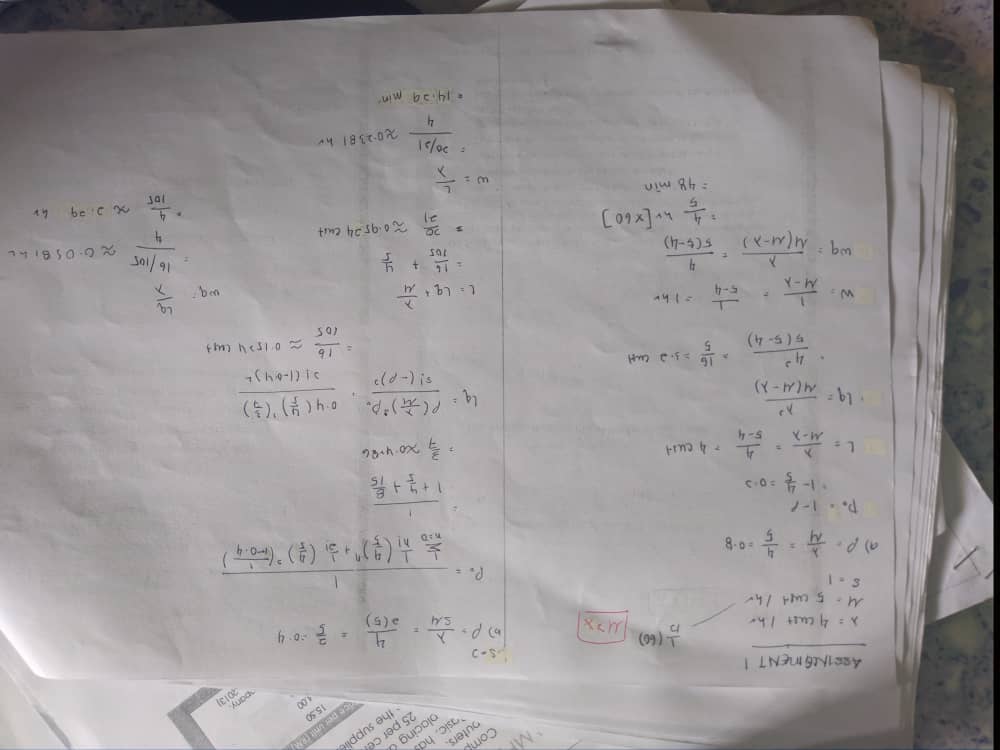 Comp
outers.
asic, has
placing o
25 per cen
the supplie
15.50
ASSINGMENT 1
λ = 4 cust / hr
μ = 5 cust / hr
s = 1
1/12 (60)
μ>λ
a) ρ = λ/μ = 4/5 = 0.8
P₀ = 1-ρ
= 1- 4/5 = 0.2
L = λ/(μ-λ) = 4/(5-4) = 4 cust
Lq = λ²/(μ(μ-λ))
= 4²/(5(5-4)) = 16/5 = 3.2 cust
W = 1/(μ-λ) = 1/(5-4) = 1 hr
Wq = λ/(μ(μ-λ)) = 4/(5(5-4))
= 4/5 hr [×60]
= 48 min
s=2
b) ρ = λ/(sμ) = 4/(2(5)) = 2/5 = 0.4
P₀ = 1/(Σ¹ₙ₌₀ 1/n! (4/5)ⁿ + 1/2! (4/5)² (1/(1-0.4)))
= 1/(1 + 4/5 + 8/15)
= 3/7 ≈ 0.4286
Lq = ρ(λ/μ)ˢP₀/(s!(1-ρ)²) = 0.4(4/5)²(3/7)/(2!(1-0.4)²)
= 16/105 ≈ 0.1524 cust
L = Lq + λ/μ
= 16/105 + 4/5
= 20/21 ≈ 0.9524 cust
W = L/λ
= (20/21)/4 ≈ 0.2381 hr
= 14.29 min
Wq = Lq/λ
= (16/105)/4 ≈ 0.0381 hr
= 4/105 ≈ 2.29 hr